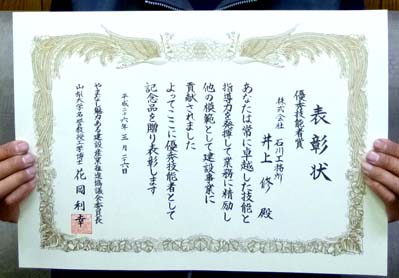 表彰状
優秀技能者賞
株式会社 石川工務所
井上 修 殿
あなたは常に卓越した技能と
指導力を発揮して業務に精励し
他の模範として建設事業に
貢献されました
よってここに優秀技能者として
記念品を贈り表彰します
平成二十六年 三月 二十六日
やまなし魅力ある建設産業推進協議会委員長
山梨大学名誉教授 工学博士 花岡利幸